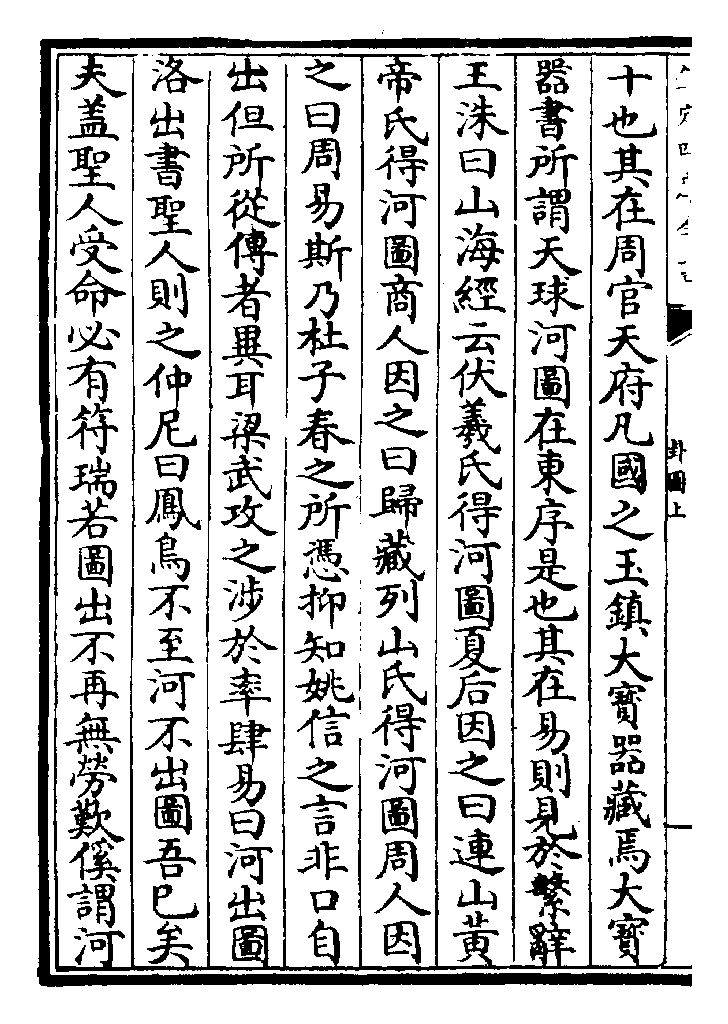 卦圖上
十也其在周官天府凡國之玉鎮大寳器藏焉大寳
器書所謂天球河圖在東序是也其在易則見於繫辭
王洙曰山海經云伏羲氏得河圖夏后因之曰連山黄
帝氏得河圖商人因之曰歸藏列山氏得河圖周人因
之曰周易斯乃杜子春之所憑抑知姚信之言非口自
出但所從傳者異耳梁武攻之涉於率肆易曰河出圖
洛出書聖人則之仲尼曰鳳鳥不至河不出圖吾已矣
夫盖聖人受命必有符瑞若圖出不再無勞歎傒謂河